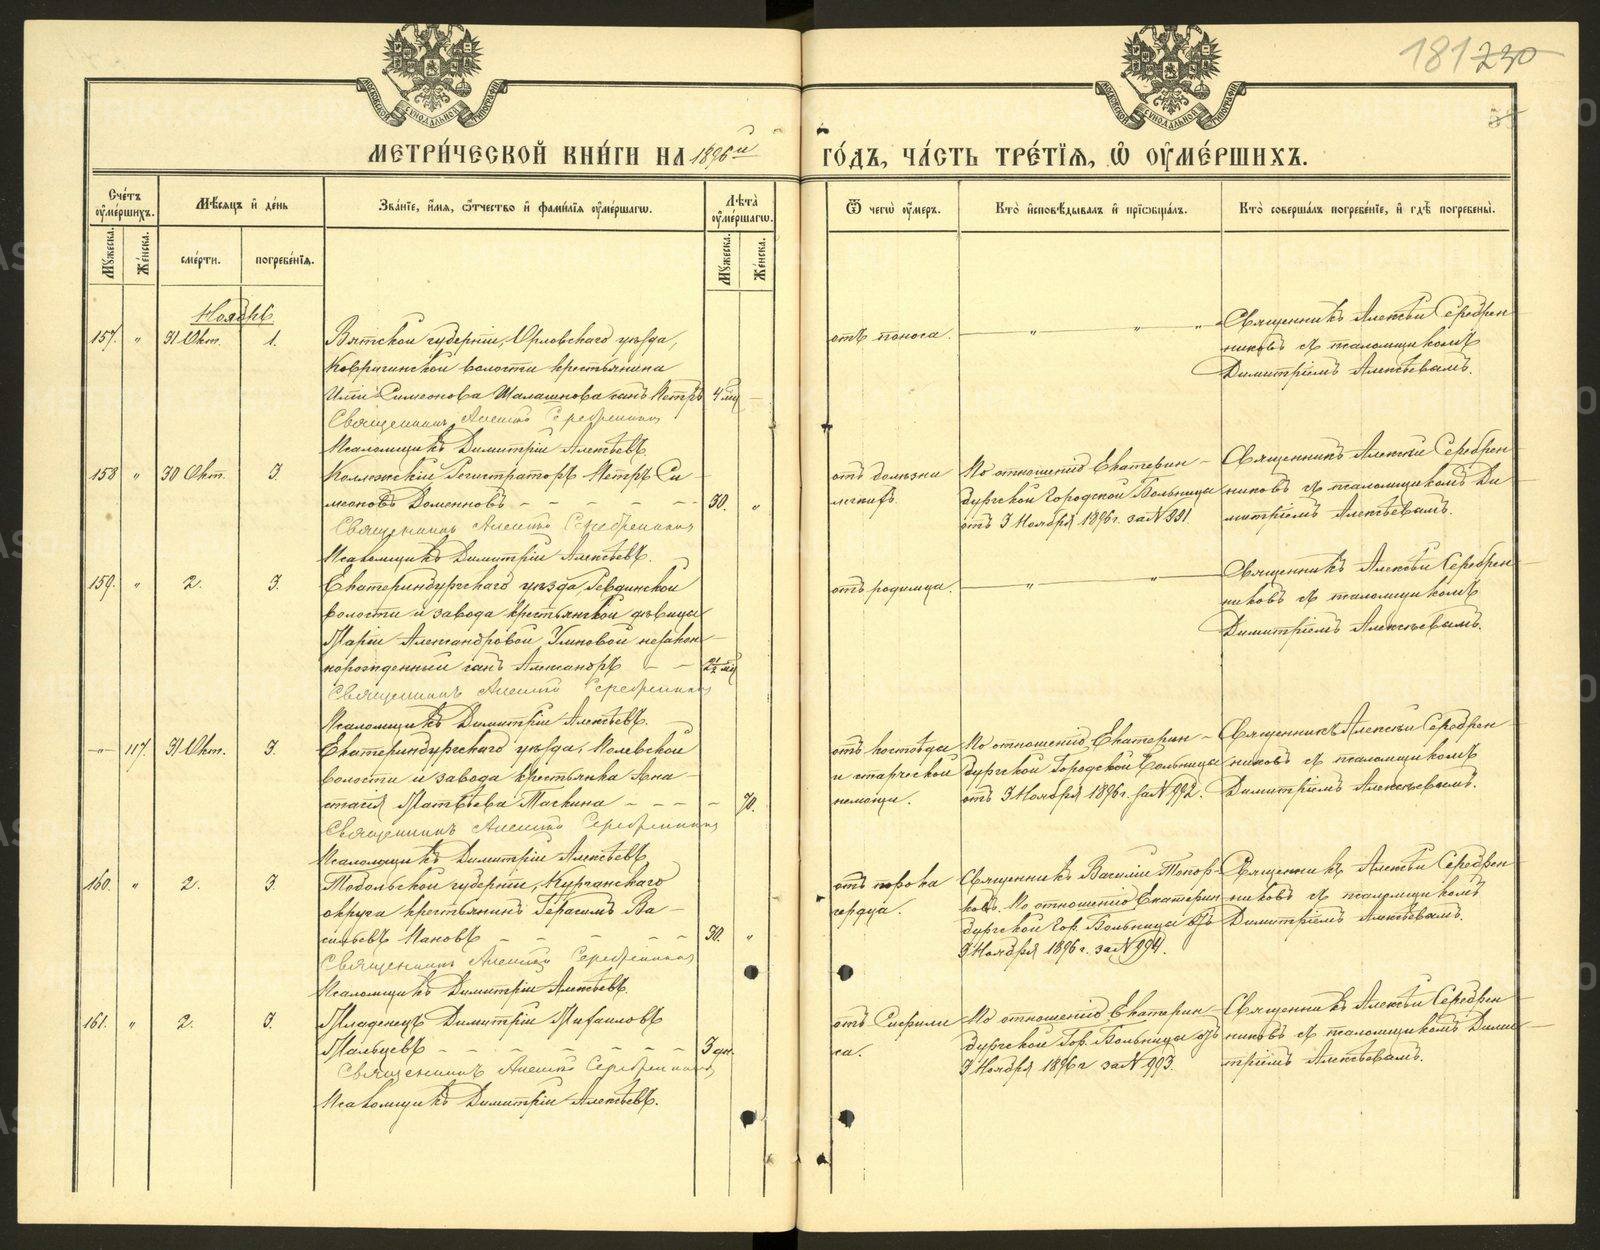 181 230
35
МОСКОВСКОЙ СѴНОДАЛЬНОЙ ТИПОГРАФІИ
МОСКОВСКОЙ СѴНОДАЛЬНОЙ ТИПОГРАФІИ
МЕТРИ́ЧЕСКОЙ КНИ́ГИ НА 1896й ГО́ДЪ, ЧА́СТЬ ТРЕ́ТІЯ, Ѡ ОУМЕ́РШИХЪ.
Сче́тъ оуме́ршихъ.
Мѣ́сяцъ и де́нь
Зва́ніе, и́мя, ѻ́тчество и фами́лія оуме́ршагѡ.
Лѣ́та оуме́ршагѡ.
Ѿ чегѡ̀ оу́меръ.
Кто̀ исповѣ́дывалъ и прїѡбща́лъ.
Кто̀ соверша́лъ погребе́ніе, и гдѣ̀ погребены̀.
Мꙋ́жеска.
Же́нска.
сме́рти.
погребе́нія.
Мꙋ́жеска.
Же́нска.
Ноябрь
157. " 31 Окт. 1.
Вятской губерніи, Орловскаго уѣзда,
волости крестьянина
Симеонова сынъ Петръ 4 мц
Священникъ Алексій Серебренниковъ
Псаломщикъ Димитрій Алексѣевъ.
отъ поноса.
Священникъ Алексѣй Серебрен
никовъ съ псаломщикомъ
Димитріемъ Алексѣевымъ.
158 " 30 Окт. 3.
Коллежскій Регистраторъ Петръ Си-
меоновъ Доменновъ 30. "
Священникъ Алексій Серебренниковъ
Псаломщикъ Димитрій Алексѣевъ.
отъ болѣзни
легкихъ.
По отношенію Екатерин-
бургской Городской Больницы
отъ 3 Ноября 1896 г. за № 991
Священникъ Алексѣй Серебрен
никовъ съ псаломщикомъ Ди
митріемъ Алексѣевымъ.
159. " 2. 3.
Екатеринбургскаго уѣзда, Ревдинской
волости и завода крестьянской дѣвицы
Маріи Александровой незакон-
норожденный сынъ Александръ 2½ мц
Священникъ Алексій Серебренниковъ
Псаломщикъ Димитрій Алексѣевъ.
отъ родимца.
Священникъ Алексѣй Серебрен
никовъ съ псаломщикомъ
Димитріемъ Алексѣевымъ.
— " — 117. 31 Окт. 3.
Екатеринбургскаго уѣзда, Полевской
волости и завода крестьянка Ана-
стасія Матвѣева Таскина 70.
Священникъ Алексій Серебренниковъ
Псаломщикъ Димитрій Алексѣевъ
отъ костоѣда
и старческой
немощи.
По отношенію Екатерин-
бургской Городской Больницы
отъ 3 Ноября 1896 г. за № 992.
Священникъ Алексѣй Серебрен
никовъ съ псаломщикомъ
Димитріемъ Алексѣевымъ.
160. " 2. 3.
Тобольской губерніи, Курганскаго
округа крестьянинъ Герасимъ Ва-
сильевъ Пановъ 30. "
Священникъ Алексій Серебренниковъ
Псаломщикъ Димитрій Алексѣевъ.
отъ порока
сердца.
Священникъ Василій Топор-
ковъ. По отношенію Екатерин
бургской Гор. Больницы отъ
3 Ноября 1896 г. за № 994.
Священникъ Алексѣй Серебрен
никовъ съ псаломщикомъ
Димитріемъ Алексѣевымъ.
161. " 2. 3.
Младенецъ Димитрій Михаиловъ
Мальцевъ 3 дн.
Священникъ Алексій Серебренниковъ
Псаломщикъ Димитрій Алексѣевъ.
отъ Сифили
са.
По отношенію Екатерин-
бургской Гор. Больницы отъ
3 Ноября 1896 г за № 993.
Священникъ Алексѣй Серебрен
никовъ съ псаломщикомъ Дими
тріемъ Алексѣевымъ.